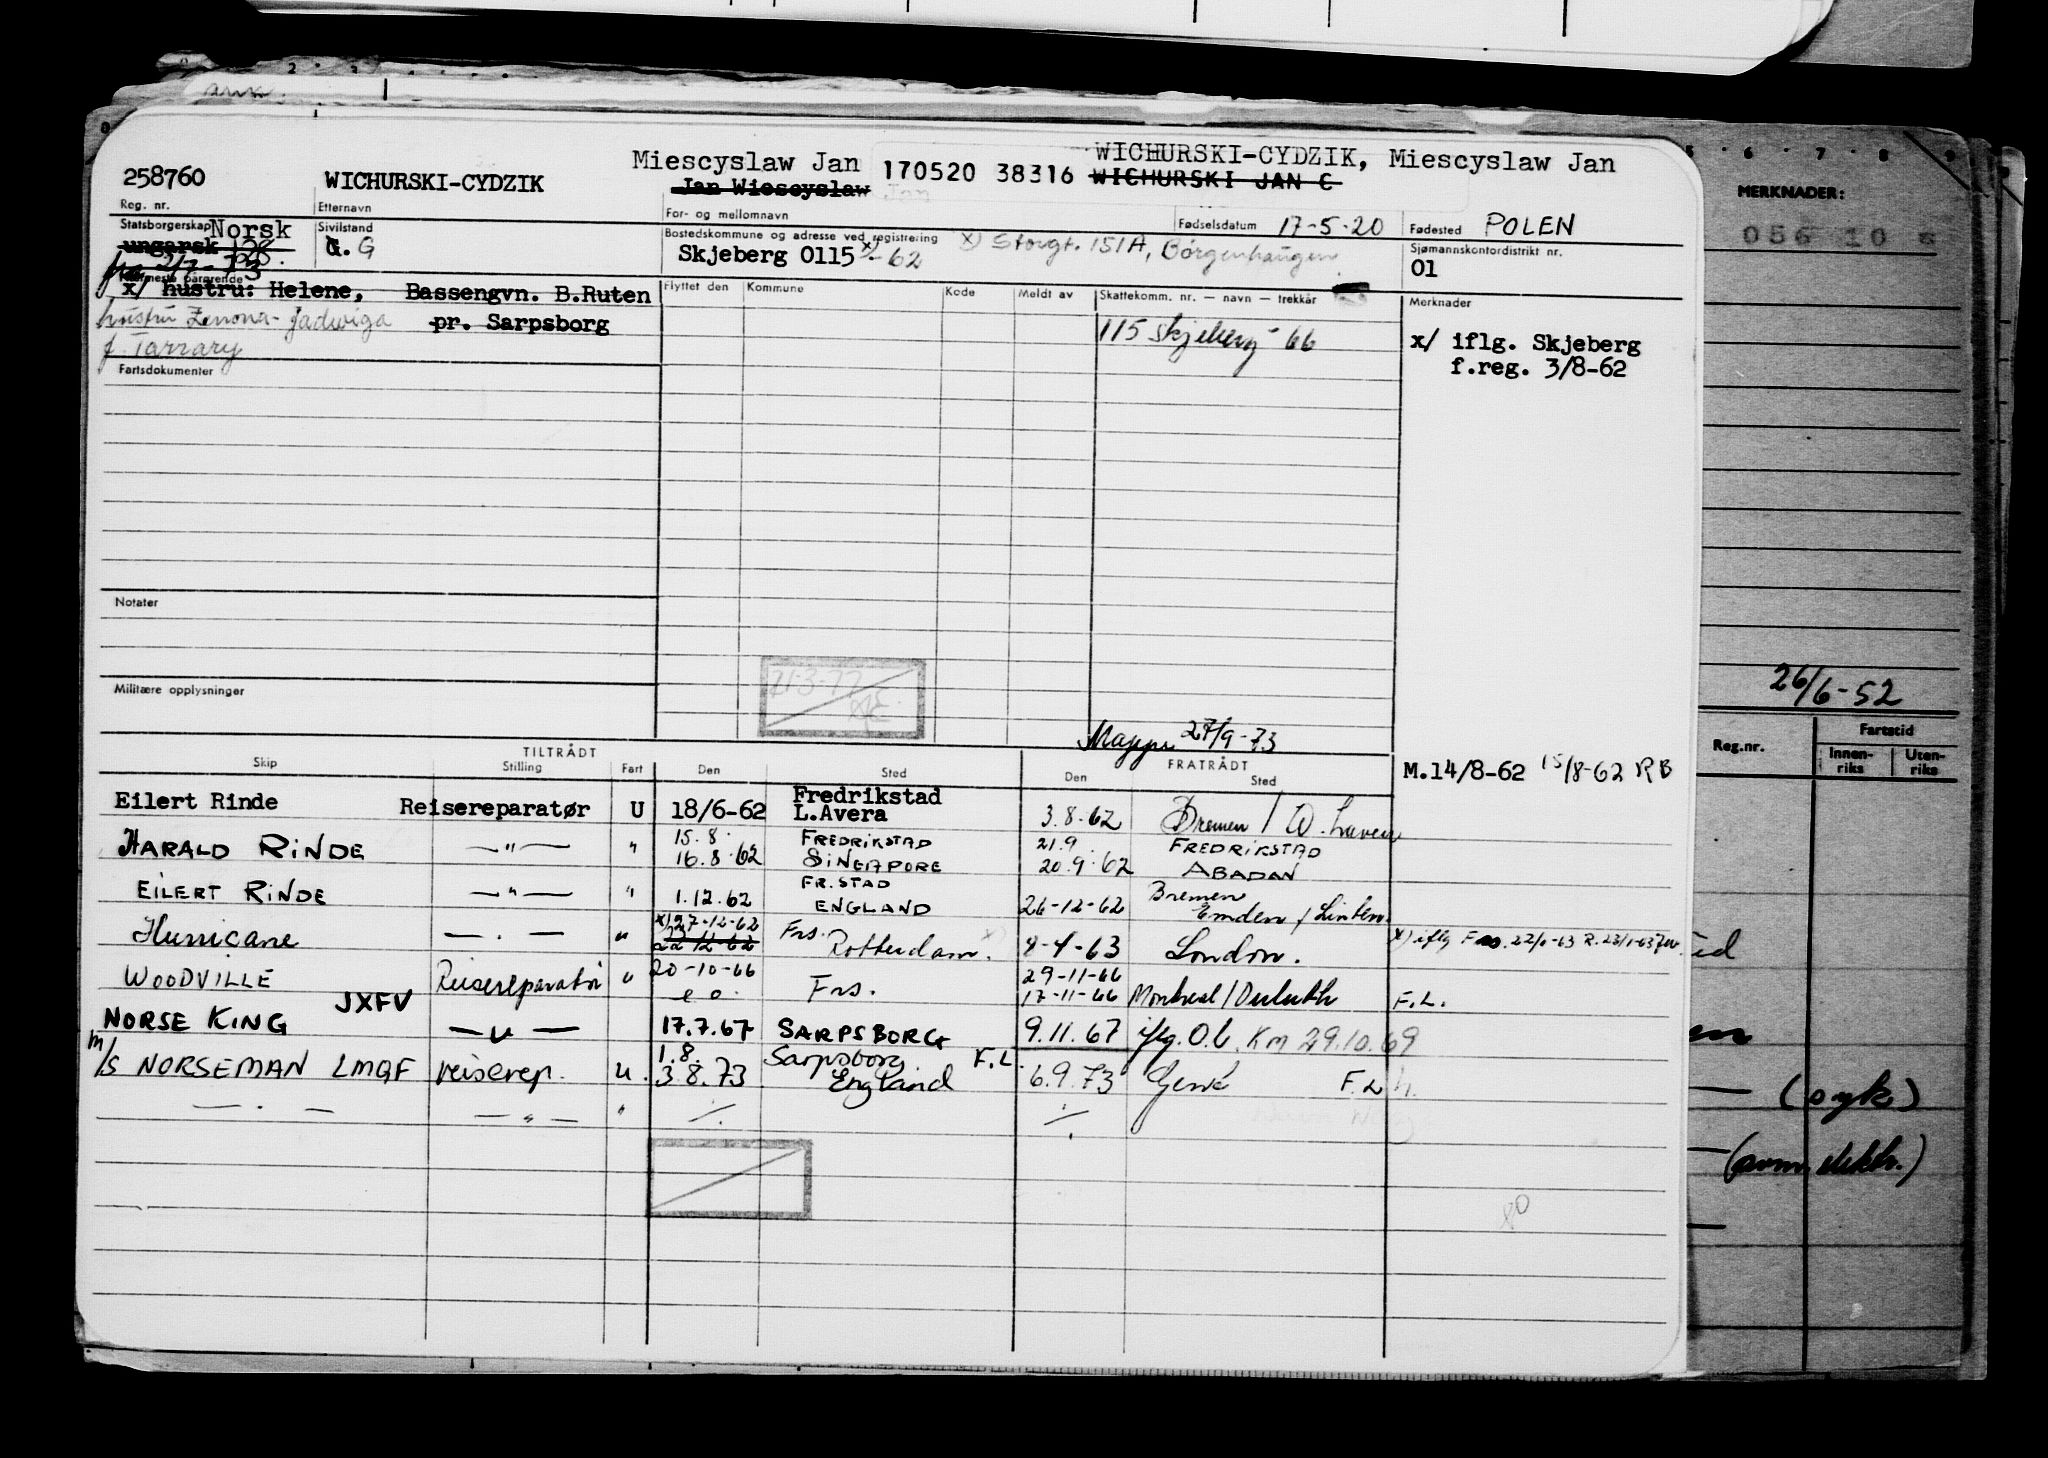 Miescyslaw Jan 170520 38316 WICHURSKI-CYDZIK, Miescyslaw Jan
258760 WICHURSKI-CYDZIK Jan Wiescyslaw WICHURSKI JAN C
Reg. nr. Etternavn For- og mellomnavn Fødselsdatum 17-5-20 Fødested POLEN
Statsborgerskap Norsk Sivilstand Bostedskommune og adresse ved registrering x) Storgt. 151A, Borgenhaugen Sjømannskontordistrikt nr.
ungarsk 128. G Skjeberg 0115 x) - 62 01
fra 2/7-73
Nærmeste pårørende Flyttet den Kommune Kode Meldt av Skattekomm. nr. — navn — trekkår Merknader
x/ hustru: Helene, Bassengvn. B.Ruten
hustru Zenona-Jadwiga pr. Sarpsborg 115 Skjeberg - 66 x/ iflg. Skjeberg
f. Tarrary f.reg. 3/8-62
Fartsdokumenter
Notater
Militære opplysninger
21-3-77
Mappe 27/9-73
TILTRÅDT FRATRÅDT
Skip Stilling Fart Den Sted Den Sted M.14/8-62 15/8-62 RB
Eilert Rinde Reisereparatør U 18/6-62 Fredrikstad L.Avera 3.8.62 Bremen / W.haven
HARALD RINDE — " — " 15.8. FREDRIKSTAD 21.9. FREDRIKSTAD
16.8.62 SINGAPORE 20.9.62 ABADAN
EILERT RINDE — " — " 1.12.62 FR.STAD ENGLAND 26-12-62 Bremen Emden
Hurricane — . — " x) 27-12-62 Frs.
22-12-62 Rotterdam. x) 8-4-63 London. x) iflg
WOODVILLE Reisereparatør U 20-10-66 Frs. 29-11-66
17-11-66 Montreal / Duluth F.L.
NORSE KING JXFV — " — 17.7.67 SARPSBORG 9.11.67 iflg. O.l. Km 29.10.69
m/s NORSEMAN LMQF reiserep. U. 1.8. Sarpsborg F.L.
3.8.73 England 6.9.73 F.L
— . — — " — " ./. ./.
MERKNADER:
056 10
26/6-52
Reg.nr. Fartstid
Innen-riks Uten-riks
(syk)